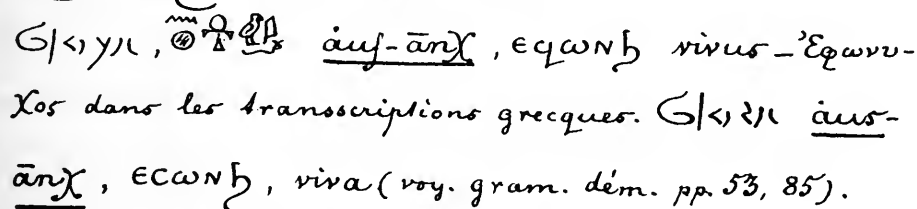 áuf-ānχ, ⲉϥⲱⲛϧ vivus – Ἐφωνυ-
χος dans les transscriptions grecques. áus-
ānχ, ⲉⲥⲱⲛϧ, viva (voy. gram. dém. pp. 53, 85).